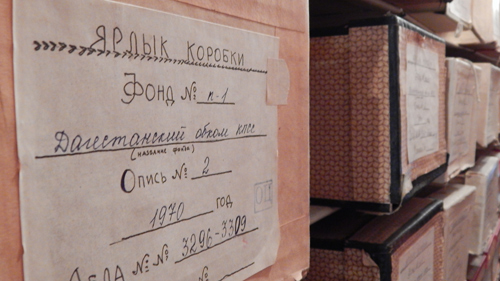 ЯРЛЫК КОРОБКИ
ФОНД № п-1
Дагестанский обком КПСС
(название фонда)
Опись № 2
1970 год
ДЕЛА №№ 3296-3309
№